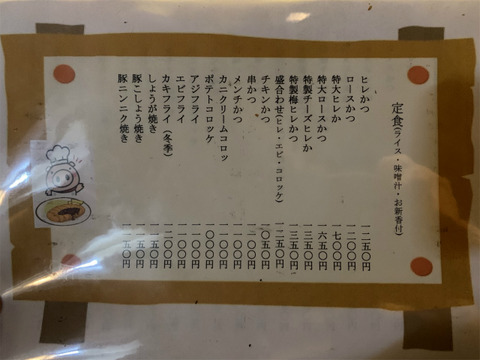 定食(ライス・味噌汁・お新香付)
ヒレかつ 一二五〇円
ロースかつ 一二〇〇円
特大ヒレかつ 一七〇〇円
特大ロースかつ 一六五〇円
特製チーズヒレか 一三五〇円
特製梅ヒレかつ 一三五〇円
盛合わせ(ヒレ・エビ・コロッケ) 一二五〇円
チキンかつ 一〇五〇円
串かつ 一二〇〇円
メンチかつ 一一〇〇円
カニクリームコロッ 一一〇〇円
ポテトコロッケ 一〇〇〇円
アジフライ 一一〇〇円
エビフライ
カキフライ(冬季) 一二〇〇円
しょうが焼き 一一五〇円
豚こしょう焼き 一一五〇円
豚ニンニク焼き 一一五〇円